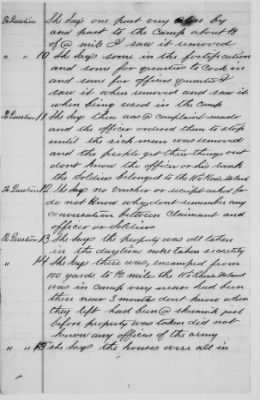 To Question She says one part very close by
and part to the Camp about ¼
of @ mile I saw it removed
" " 10 She says some in the fortification
and some fires quarters to Cook in
and some for officers quarters I
saw it when removed and saw it
when being used in the Camp
To Question 11 She say there was @ complaint made
and the officer ordered them to stop
until the sick man was removed
and the people get their things out
dont know the officer or his rank
the Soldiers belonged to the Rode Island
To Question 12 She says no voucher or receipt asked for
do not know why dont remember any
conversation between Claimant and
officer or Soldiers
To Question 13 She says the property was all taken
in the daytime not taken secretly
" 14 She says there was, encamped from
100 yards to mile the Rhode Island
was in camp very near had been
there near 3 months dont know when
they left had been @ skirmish just
before property was taken did not
know any officers of the army
" " 15 She says the houses were all in